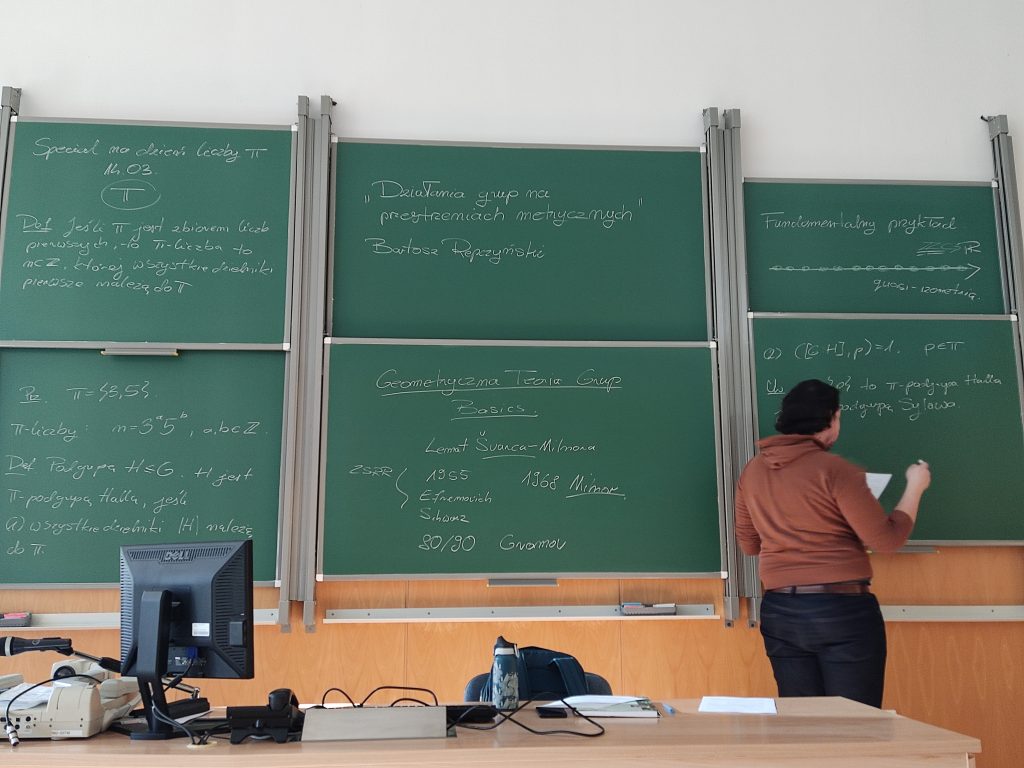 Special na dzień liczby π
14.03.
π
Def Jeśli π jest zbiorem liczb
pierwszych, to π-liczba to
n∈Z, której wszystkie dzielniki
pierwsze należą do π
Prz. π = {3,5}.
π-liczby: n=3^a 5^b, a,b∈Z.
Def Podgrupa H≤G. H jest
π-podgrupą Halla, jeśli
(1) wszystkie dzielniki |H| należą
do π.
„Działania grup na
przestrzeniach metrycznych"
Bartosz Repczyński
Geometryczna Teoria Grup
Basics.
Lemat Švarca-Milnora
ZSRR
1955
Efremovich
Schwarz
1968 Milnor
80/90 Gromov
Fundamentalny przykład
R
quasi-izometria.
(2) ([G:H],p)=1. p∈π
{p} to π-podgrupa Halla
podgrupą Sylowa
DELL